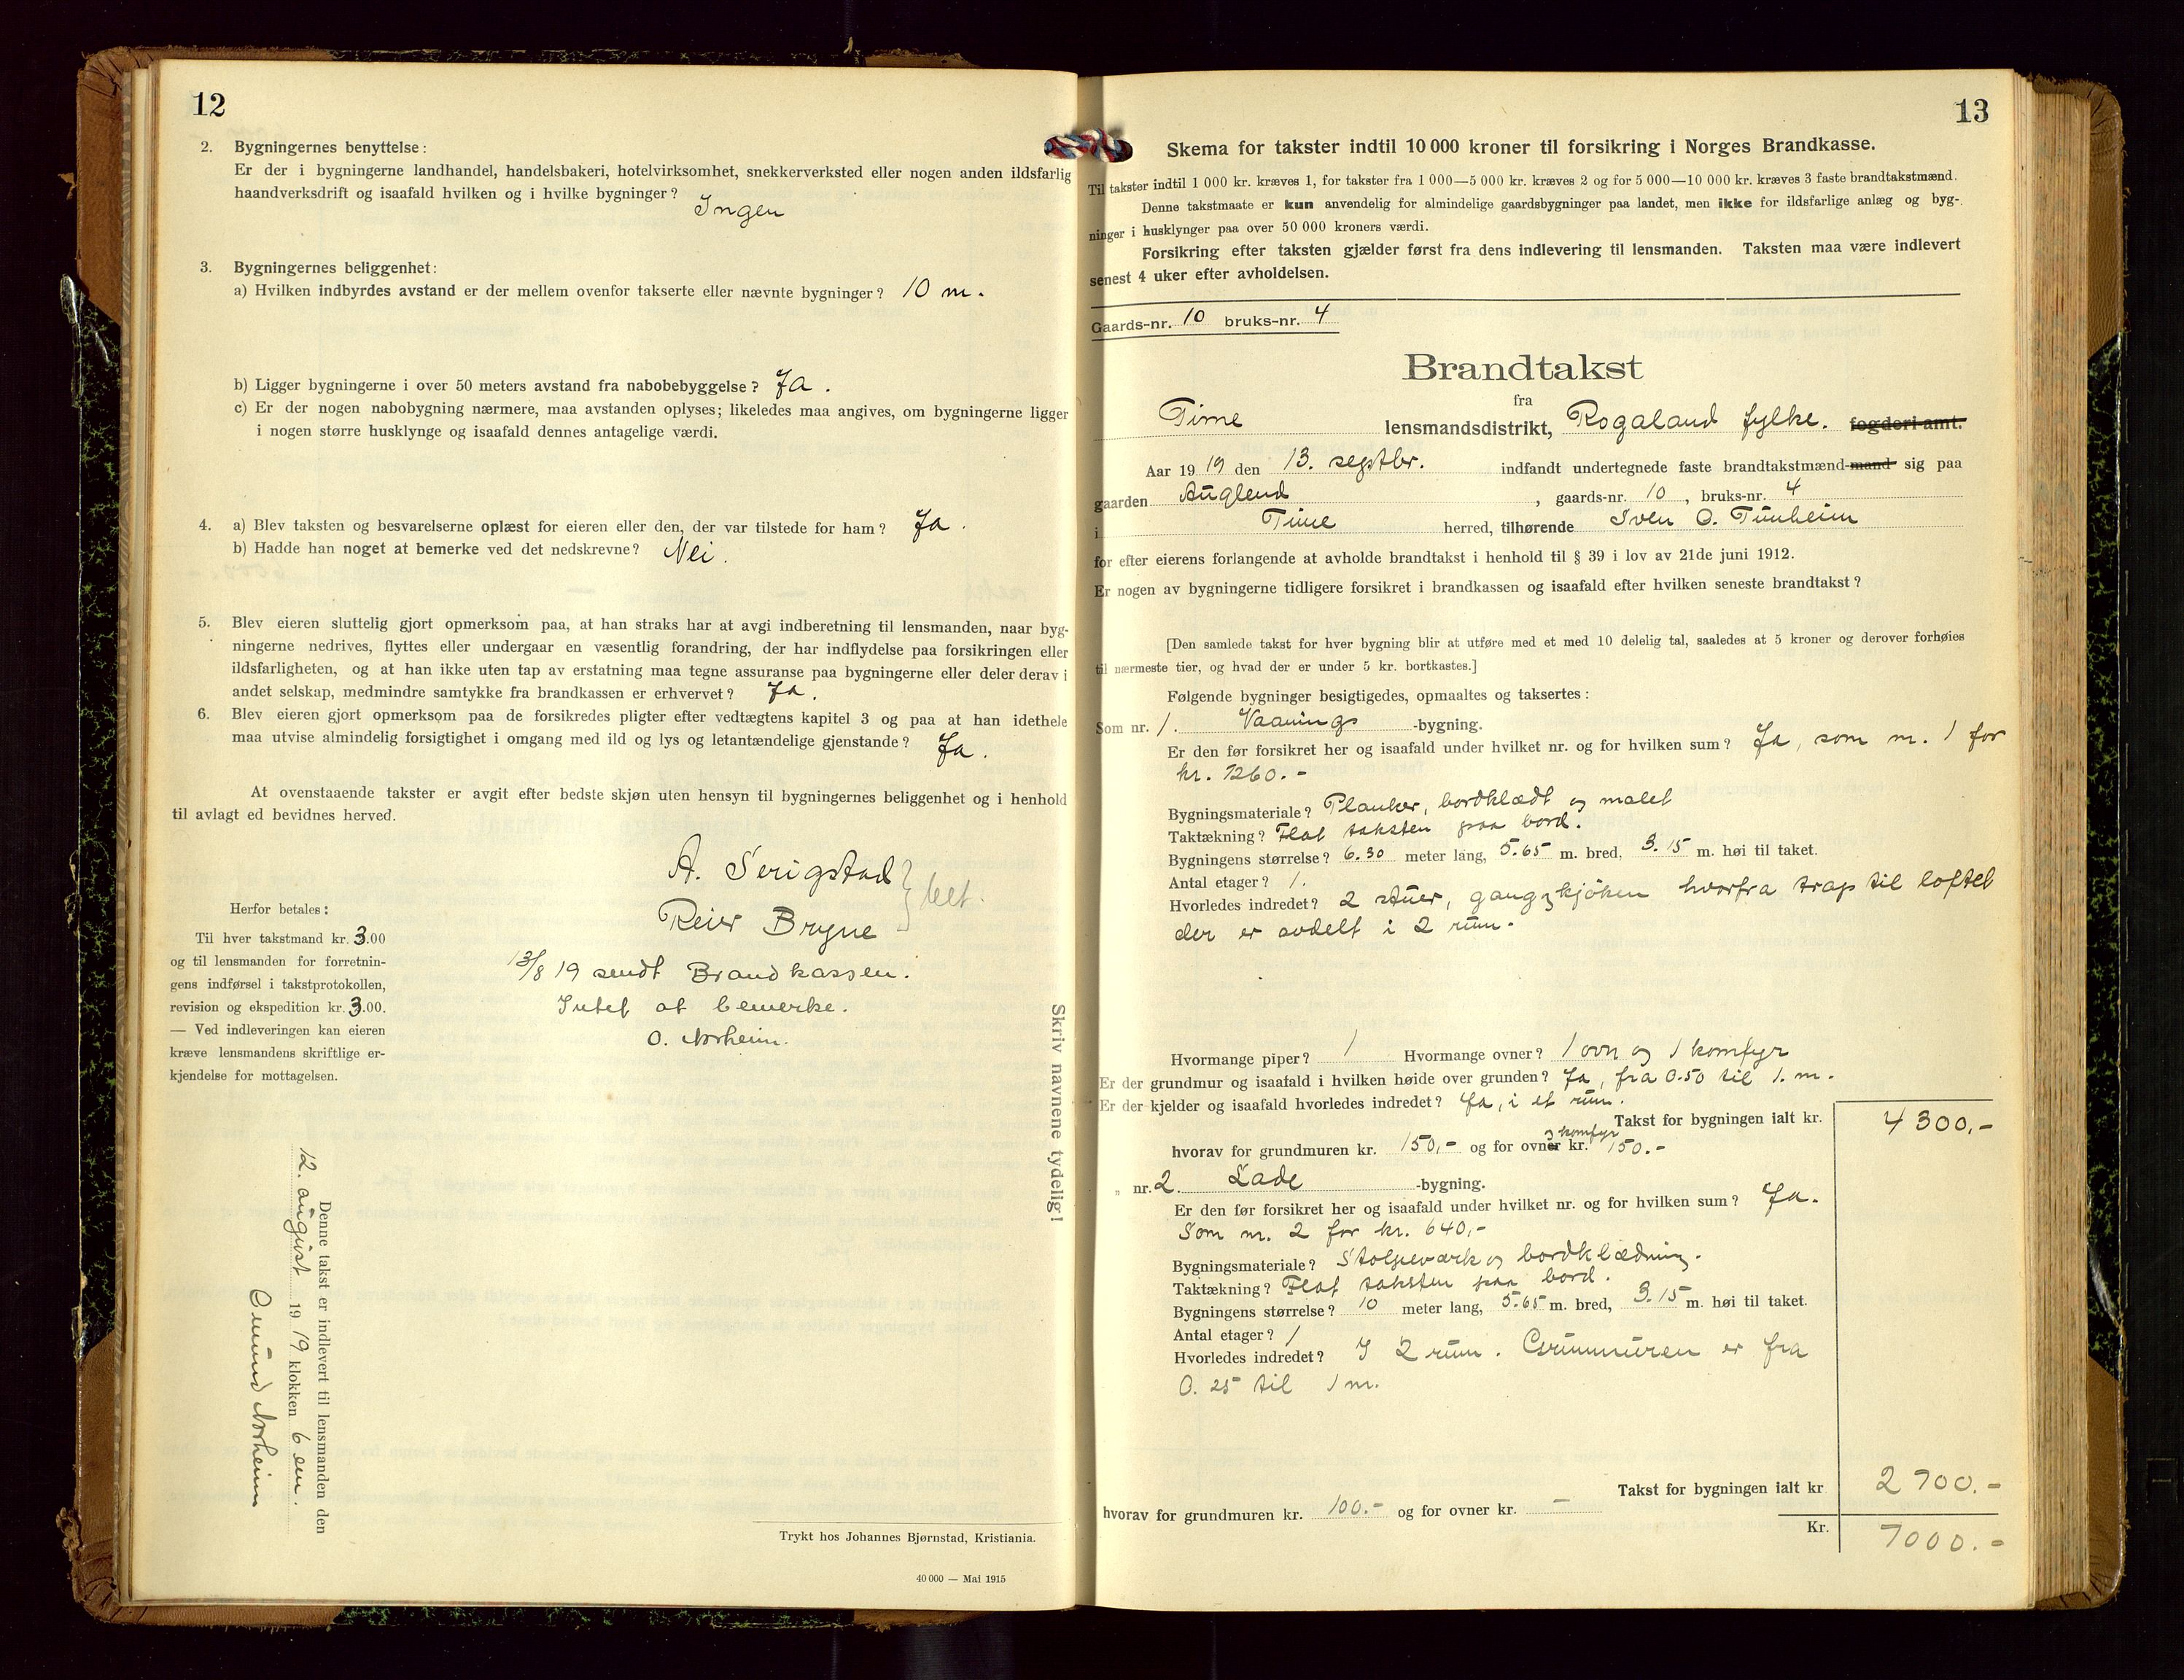 12
2. Bygningernes benyttelse:
Er der i bygningerne landhandel, handelsbakeri, hotelvirksomhet, snekkerverksted eller nogen anden ildsfarlig
haandverksdrift og isaafald hvilken og i hvilke bygninger?
Ingen
3. Bygningernes beliggenhet:
a) Hvilken indbyrdes avstand er der mellem ovenfor takserte eller nævnte bygninger? 10 m.
b) Ligger bygningerne i over 50 meters avstand fra nabobebyggelse? Ja.
c) Er der nogen nabobygning nærmere, maa avstanden oplyses; likeledes maa angives, om bygningerne ligger
i nogen større husklynge og isaafald dennes antagelige værdi.
4. a) Blev taksten og besvarelserne oplæst for eieren eller den, der var tilstede for ham? Ja.
b) Hadde han noget at bemerke ved det nedskrevne? Nei.
5. Blev eieren sluttelig gjort opmerksom paa, at han straks har at avgi indberetning til lensmanden, naar byg-
ningerne nedrives, flyttes eller undergaar en væsentlig forandring, der har indflydelse paa forsikringen eller
ildsfarligheten, og at han ikke uten tap av erstatning maa tegne assuranse paa bygningerne eller deler derav i
andet selskap, medmindre samtykke fra brandkassen er erhvervet? Ja.
6. Blev eieren gjort opmerksom paa de forsikredes pligter efter vedtægtens kapitel 3 og paa at han idethele
maa utvise almindelig forsigtighet i omgang med ild og lys og letantændelige gjenstande? Ja.
At ovenstaaende takster er avgit efter bedste skjøn uten hensyn til bygningernes beliggenhet og i henhold
til avlagt ed bevidnes herved.
A. Serigstad
Reier Bryne
bet.
13/8 19 sendt Brandkassen.
Intet at bemerke.
O. Norheim.
Herfor betales:
Til hver takstmand kr. 3.00
og til lensmanden for forretnin-
gens indførsel i takstprotokollen,
revision og ekspedition kr. 3.00.
— Ved indleveringen kan eieren
kræve lensmandens skriftlige er-
kjendelse for mottagelsen.
Denne takst er indlevert til lensmanden den
12. august 19 19 klokken 6 em.
Omund Norheim
Skriv navnene tydelig!
Trykt hos Johannes Bjørnstad, Kristiania.
40 000 — Mai 1915
13
Skema for takster indtil 10 000 kroner til forsikring i Norges Brandkasse.
Til takster indtil 1 000 kr. kræves 1, for takster fra 1 000—5 000 kr. kræves 2 og for 5 000—10 000 kr. kræves 3 faste brandtakstmænd.
Denne takstmaate er kun anvendelig for almindelige gaardsbygninger paa landet, men ikke for ildsfarlige anlæg og byg-
ninger i husklynger paa over 50 000 kroners værdi.
Forsikring efter taksten gjælder først fra dens indlevering til lensmanden. Taksten maa være indlevert
senest 4 uker efter avholdelsen.
Gaards-nr. 10 bruks-nr. 4
Brandtakst
fra
Time lensmandsdistrikt, Rogaland fylke. fogderi amt.
Aar 19 19 den 13. septbr. indfandt undertegnede faste brandtakstmænd-mand sig paa
gaarden Auglend, gaards-nr. 10, bruks-nr. 4
i Time herred, tilhørende Sven O. Tunheim
for efter eierens forlangende at avholde brandtakst i henhold til § 39 i lov av 21de juni 1912.
Er nogen av bygningerne tidligere forsikret i brandkassen og isaafald efter hvilken seneste brandtakst?
[Den samlede takst for hver bygning blir at utføre med et med 10 delelig tal, saaledes at 5 kroner og derover forhøies
til nærmeste tier, og hvad der er under 5 kr. bortkastes.]
Følgende bygninger besigtigedes, opmaaltes og taksertes:
Som nr. 1. Vaanings -bygning.
Er den før forsikret her og isaafald under hvilket nr. og for hvilken sum? Ja, som nr. 1 for
kr. 1260.-
Bygningsmateriale? Planker, bordklædt og malet
Taktækning? Flat taksten paa bord.
Bygningens størrelse? 6.30 meter lang, 5.65 m. bred, 3.15 m. høi til taket.
Antal etager? 1.
Hvorledes indredet? 2 stuer, gang og kjøken hvorfra trap til loftet
der er avdelt i 2 rum.
Hvormange piper? 1 Hvormange ovner? 1 ovn og 1 komfyr
Er der grundmur og isaafald i hvilken høide over grunden? Ja, fra 0.50 til 1. m.
Er der kjelder og isaafald hvorledes indredet? Ja, i et rum.
Takst for bygningen ialt kr. 4300,-
og komfyr
hvorav for grundmuren kr. 150,- og for ovner kr. 150.-
„ nr. 2. Lade -bygning.
Er den før forsikret her og isaafald under hvilket nr. og for hvilken sum? Ja.
Som nr. 2 for kr. 640,-
Bygningsmateriale? Stolpeværk og bordklædning.
Taktækning? Flat taksten paa bord.
Bygningens størrelse? 10 meter lang, 5.65 m. bred, 3.15 m. høi til taket.
Antal etager? 1
Hvorledes indredet? I 2 rum. Grunmuren er fra
0.25 til 1 m.
Takst for bygningen ialt kr 2700.-
hvorav for grundmuren kr. 100.- og for ovner kr. —
Kr. 7000.-